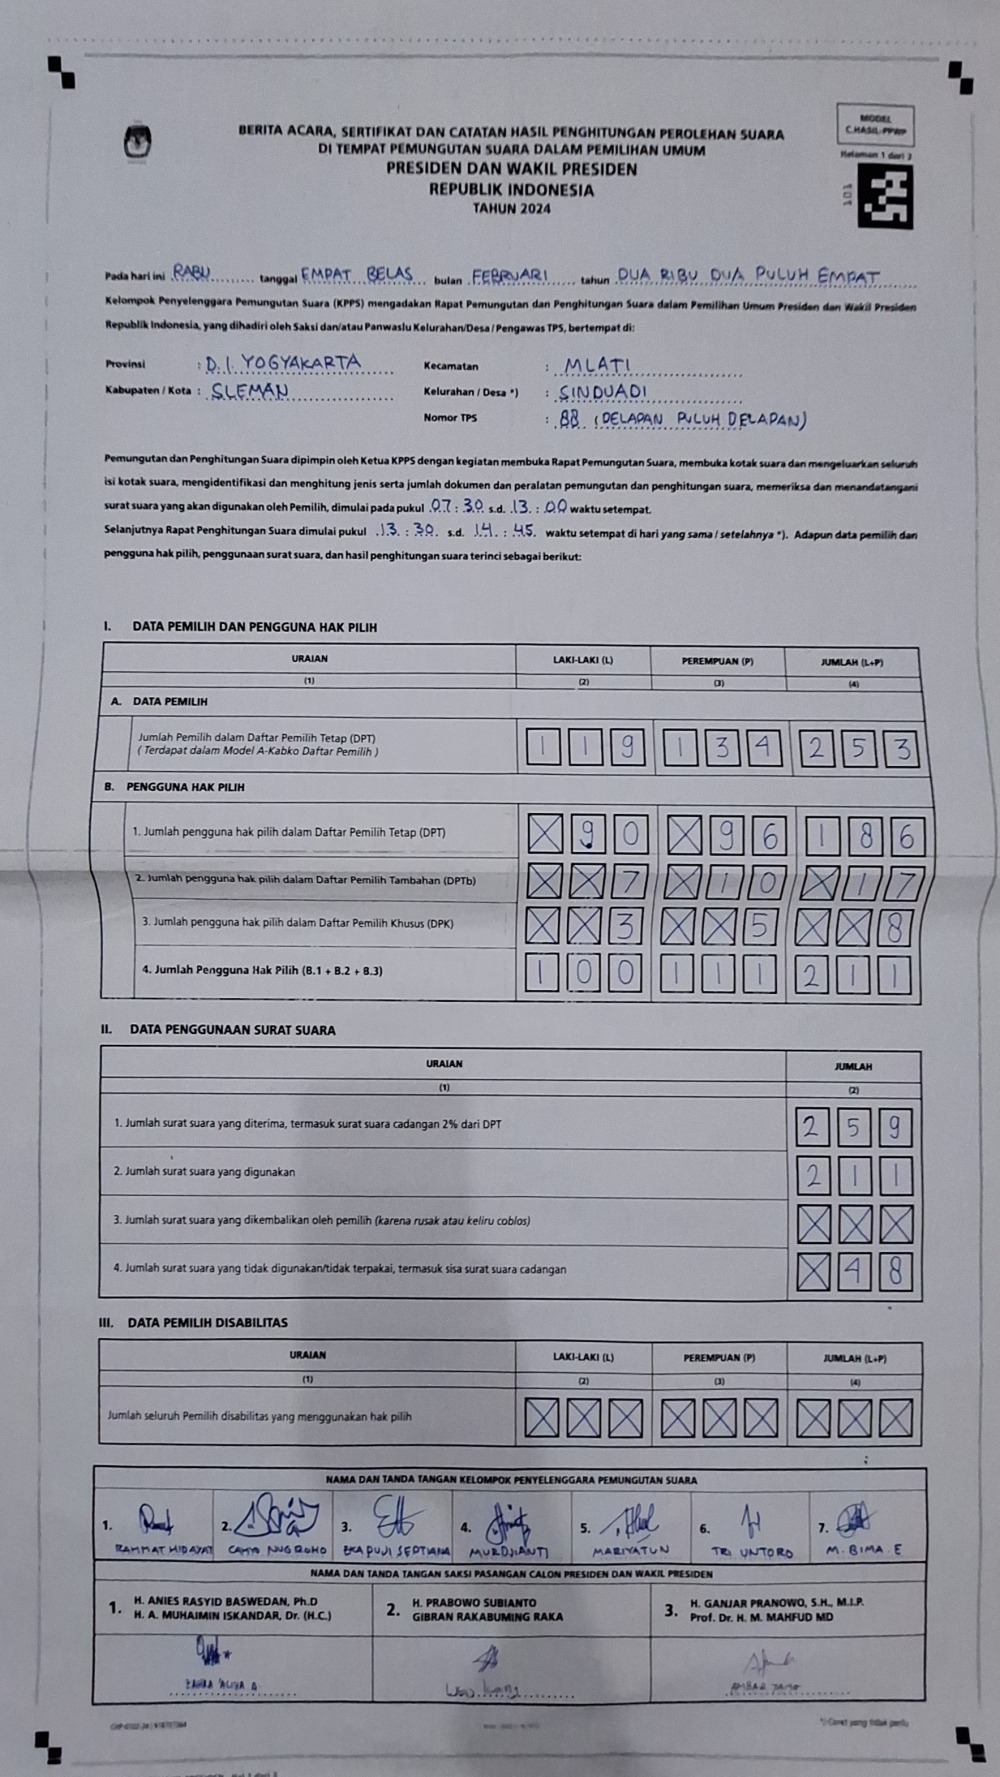 MODEL
C.HASIL-PPWP
Halaman 1 dari 3
101
BERITA ACARA, SERTIFIKAT DAN CATATAN HASIL PENGHITUNGAN PEROLEHAN SUARA
DI TEMPAT PEMUNGUTAN SUARA DALAM PEMILIHAN UMUM
PRESIDEN DAN WAKIL PRESIDEN
REPUBLIK INDONESIA
TAHUN 2024
Pada hari ini RABU tanggal EMPAT BELAS bulan FEBRUARI tahun DUA RIBU DUA PULUH EMPAT
Kelompok Penyelenggara Pemungutan Suara (KPPS) mengadakan Rapat Pemungutan dan Penghitungan Suara dalam Pemilihan Umum Presiden dan Wakil Presiden
Republik Indonesia, yang dihadiri oleh Saksi dan/atau Panwaslu Kelurahan/Desa / Pengawas TPS, bertempat di:
Provinsi : D.I. YOGYAKARTA Kecamatan : MLATI
Kabupaten / Kota : SLEMAN Kelurahan / Desa *) : SINDUADI
Nomor TPS : 88 (DELAPAN PULUH DELAPAN)
Pemungutan dan Penghitungan Suara dipimpin oleh Ketua KPPS dengan kegiatan membuka Rapat Pemungutan Suara, membuka kotak suara dan mengeluarkan seluruh
isi kotak suara, mengidentifikasi dan menghitung jenis serta jumlah dokumen dan peralatan pemungutan dan penghitungan suara, memeriksa dan menandatangani
surat suara yang akan digunakan oleh Pemilih, dimulai pada pukul 07 : 30 s.d. 13 : 00 waktu setempat.
Selanjutnya Rapat Penghitungan Suara dimulai pukul 13 : 30 s.d. 14 : 45 waktu setempat di hari yang sama / setelahnya *). Adapun data pemilih dan
pengguna hak pilih, penggunaan surat suara, dan hasil penghitungan suara terinci sebagai berikut:
I. DATA PEMILIH DAN PENGGUNA HAK PILIH
URAIAN LAKI-LAKI (L) PEREMPUAN (P) JUMLAH (L+P)
(1) (2) (3) (4)
A. DATA PEMILIH
Jumlah Pemilih dalam Daftar Pemilih Tetap (DPT) 1 1 9 1 3 4 2 5 3
( Terdapat dalam Model A-Kabko Daftar Pemilih )
B. PENGGUNA HAK PILIH
1. Jumlah pengguna hak pilih dalam Daftar Pemilih Tetap (DPT) X 9 0 X 9 6 1 8 6
2. Jumlah pengguna hak pilih dalam Daftar Pemilih Tambahan (DPTb) X X 7 X 1 0 X 1 7
3. Jumlah pengguna hak pilih dalam Daftar Pemilih Khusus (DPK) X X 3 X X 5 X X 8
4. Jumlah Pengguna Hak Pilih (B.1 + B.2 + B.3) 1 0 0 1 1 1 2 1 1
II. DATA PENGGUNAAN SURAT SUARA
URAIAN JUMLAH
(1) (2)
1. Jumlah surat suara yang diterima, termasuk surat suara cadangan 2% dari DPT 2 5 9
2. Jumlah surat suara yang digunakan 2 1 1
3. Jumlah surat suara yang dikembalikan oleh pemilih (karena rusak atau keliru coblos) X X X
4. Jumlah surat suara yang tidak digunakan/tidak terpakai, termasuk sisa surat suara cadangan X 4 8
III. DATA PEMILIH DISABILITAS
URAIAN LAKI-LAKI (L) PEREMPUAN (P) JUMLAH (L+P)
(1) (2) (3) (4)
Jumlah seluruh Pemilih disabilitas yang menggunakan hak pilih X X X X X X X X X
NAMA DAN TANDA TANGAN KELOMPOK PENYELENGGARA PEMUNGUTAN SUARA
1. 2. 3. 4. 5. 6. 7.
RAHMAT HIDAYAT CAHYO NUGROHO EKA PUJI SEPTIANA MURDJIANTI MARIYATUN TRI UNTORO M. BIMA. E
NAMA DAN TANDA TANGAN SAKSI PASANGAN CALON PRESIDEN DAN WAKIL PRESIDEN
1. H. ANIES RASYID BASWEDAN, Ph.D
H. A. MUHAIMIN ISKANDAR, Dr. (H.C.)
2. H. PRABOWO SUBIANTO
GIBRAN RAKABUMING RAKA
3. H. GANJAR PRANOWO, S.H., M.I.P.
Prof. Dr. H. M. MAHFUD MD
ZAHRA ALIYA A
*) Coret yang tidak perlu